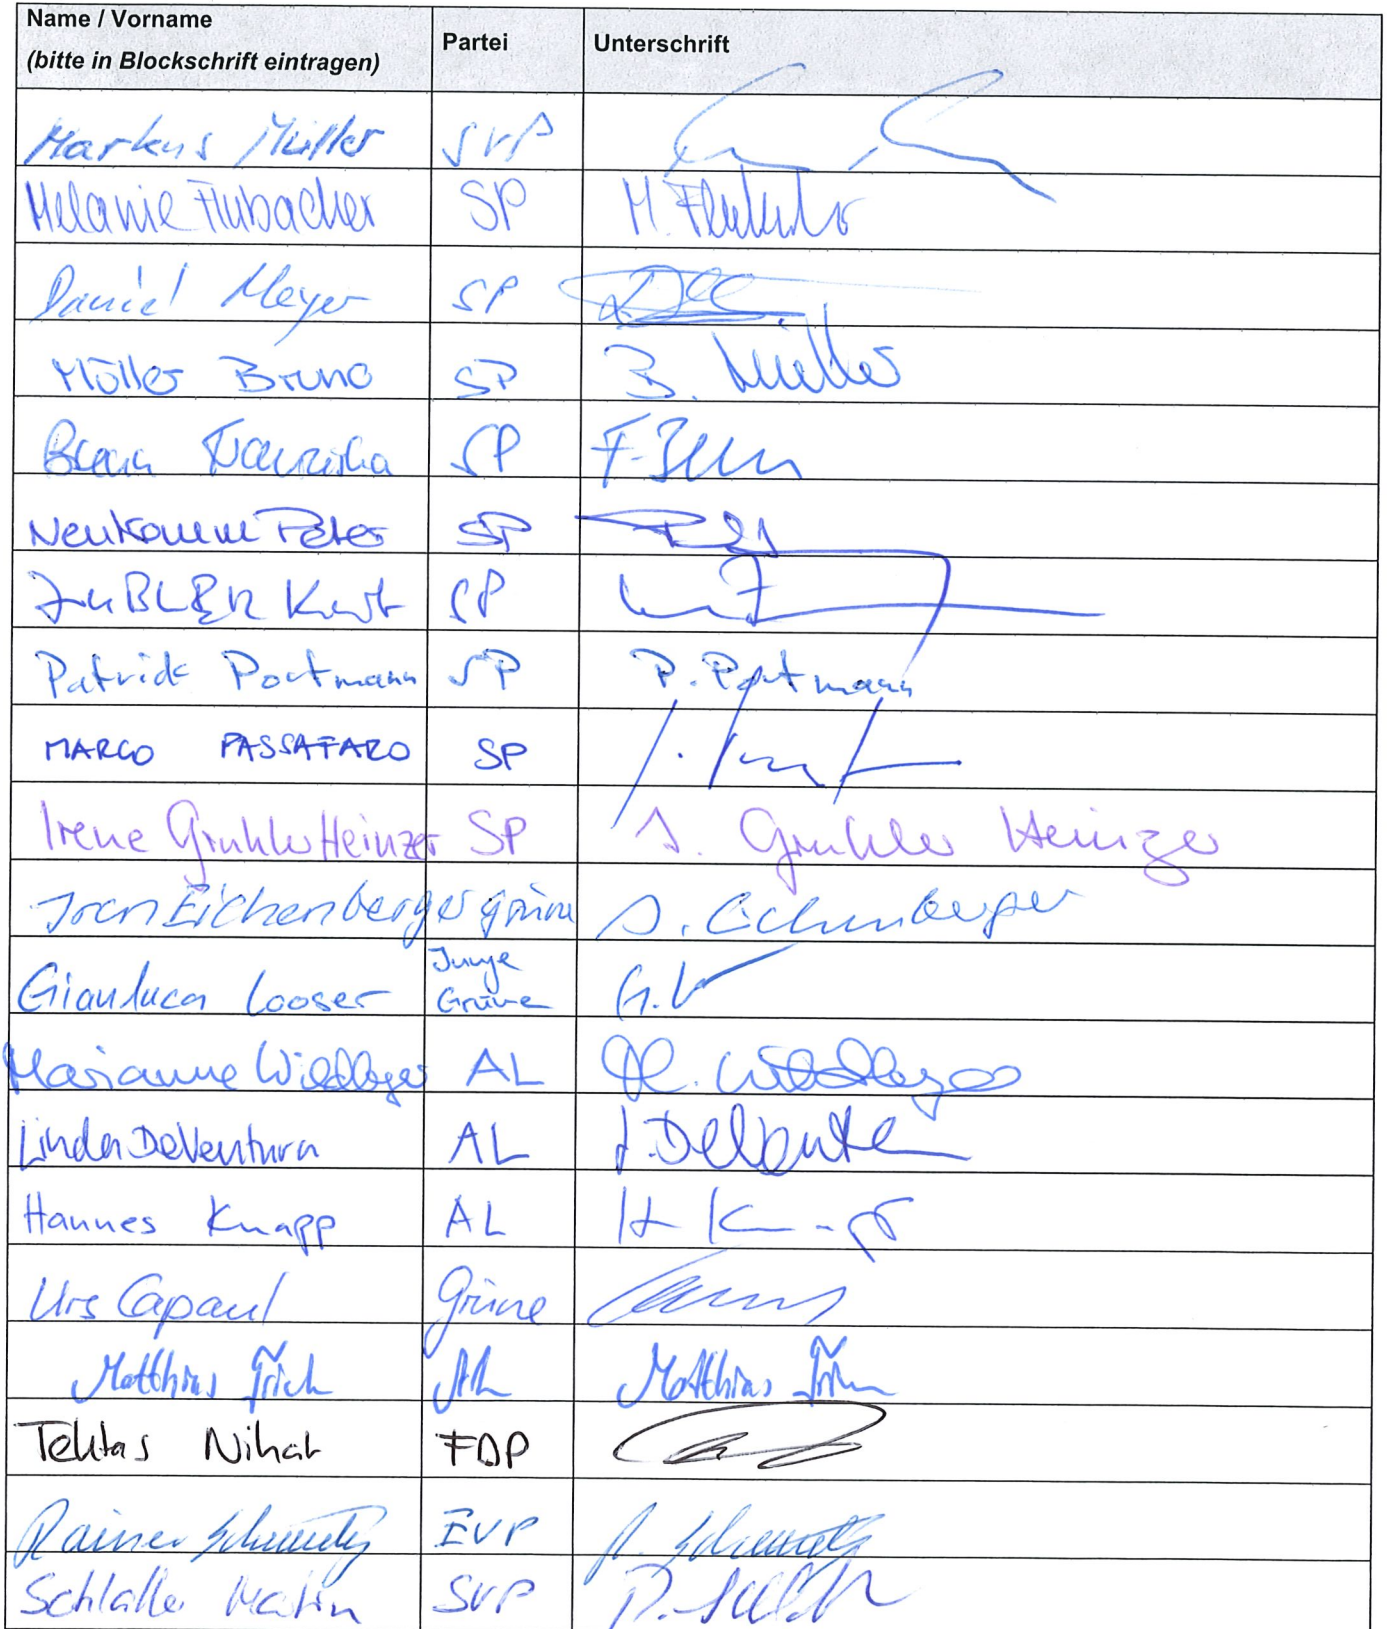 Name / Vorname
(bitte in Blockschrift eintragen)
Partei
Unterschrift
Markus Müller SVP
Melanie Flubacher SP M. Flubacher
Daniel Meyer SP
Müller Bruno SP B. Müller
Brenn Franziska SP F. Brenn
Neukomm Peter SP
ZUBLER Kurt SP
Patrick Portmann SP P. Portmann
MARCO PASSAFARO SP
Irene Gruhler Heinzer SP I. Gruhler Heinzer
Iren Eichenberger Grüne I. Eichenberger
Gianluca Looser Junge Grüne G. L
Marianne Wildberger AL M. Wildberger
Linda De Ventura AL L. De Ventura
Hannes Knapp AL H Knapp
Urs Capaul Grüne
Matthias Frick AL Matthias Frick
Tektas Nihat FDP
Rainer Schmidig EVP R. Schmidig
Schlatter Martin SVP